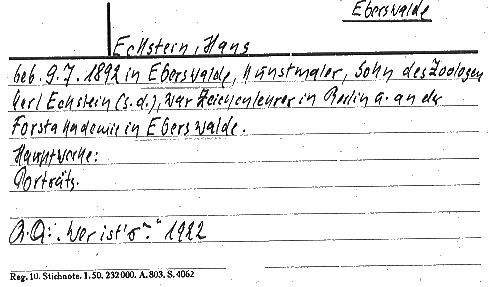 Eberswalde
Eckstein, Hans
geb. 9.7.1892 in Eberswalde, Kunstmaler, Sohn des Zoologen
Karl Eckstein (s.d.), war Zeichenlehrer in Berlin u. an der
Forstakademie in Eberswalde.
Hauptwerke:
Porträts.
"Wer ist's" 1922
Reg. 10. Stichnote. I. 50. 232000. A. 803. S. 4062